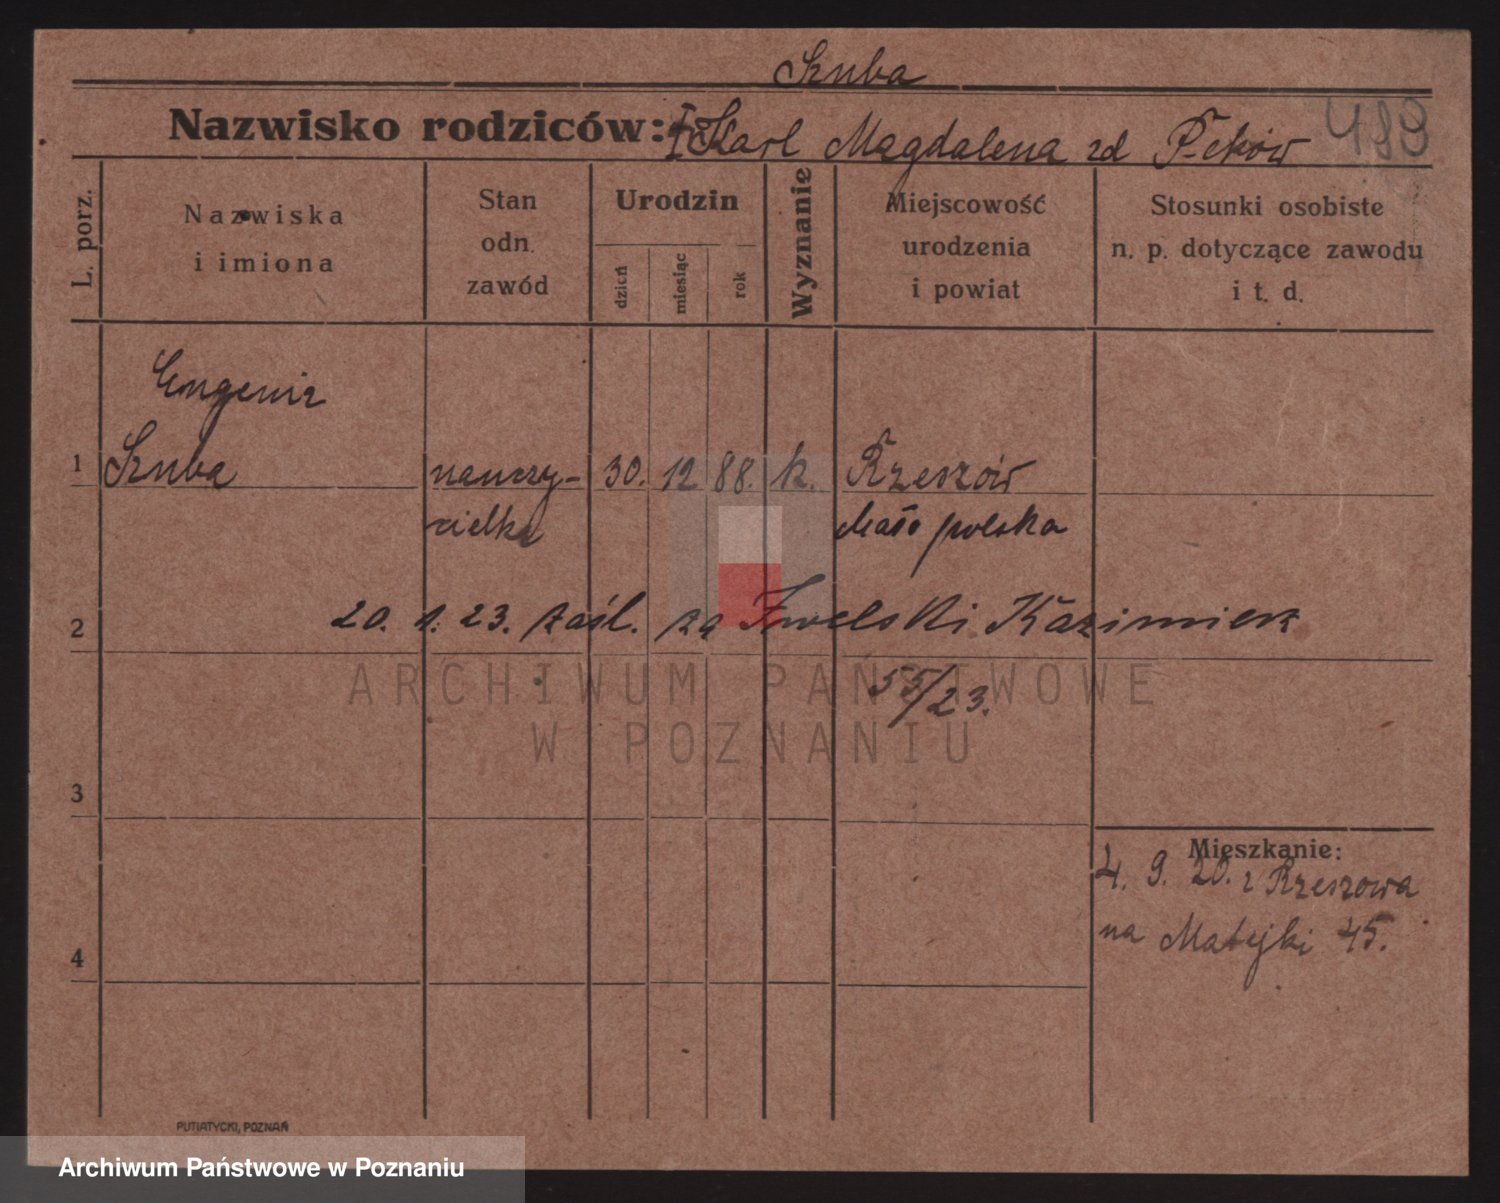 Szuba
Nazwisko rodziców: Karl Magdalena zd
489
L. porz.
Nazwiska
i imiona
Stan
odn.
zawód
Urodzin
dzień
miesiąc
rok
Wyznanie
Miejscowość
urodzenia
i powiat
Stosunki osobiste
n. p. dotyczące zawodu
i t. d.
Eugenia
1 Szuba nauczy- 30. 12 88. k. Rzeszów
cielka Małopolska
2 20. 1. 23. zaśl. za Kazimierz
55/23.
ARCHIWUM PAŃSTWOWE
W POZNANIU
3
Mieszkanie:
4. 9. 20. z Rzeszowa
na Matejki 45.
4
PUTIATYCKI, POZNAŃ
Archiwum Państwowe w Poznaniu